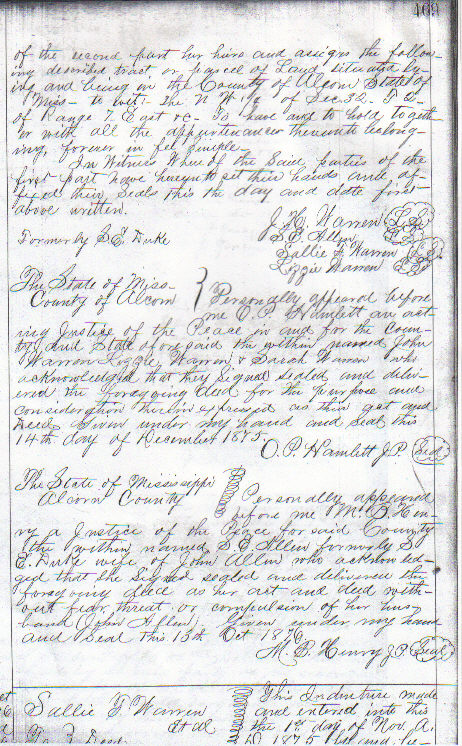 469
of the second part her heirs and assigns the follow-
ing described tract or parcel of Land situated ly-
ing and being in the County of Alcorn State of
Miss - to wit: the N W ¼ of Sec. 32. T. 2.
of Range 7. East &c. To have and to hold togeth-
er with all the appurtenances thereunto belong-
ing, forever in fee simple.
In Witness Whereof the Said parties of the
first part have hereunto set their hands and af-
fixed their Seals this the day and date first
above written.
J. H. Warren L.S.
Formerly S. E. Duke S. E. Allen L.S.
Sallie F. Warren L.S.
Lizzie Warren L.S.
The State of Miss-
County of Alcorn
Personally appeared before
me O. P. Hamlett an act-
ing Justice of the Peace in and for the coun-
ty and State aforesaid the within named John
Warren Lizzie Warren & Sarah Warren who
acknowledged that they Signed sealed and deliv-
ered the foregoing deed for the purpose and
consideration therein expressed as their act and
Deed. Given under my hand and Seal this
14th day of December 1875.
O. P. Hamlett J.P. Seal
The State of Mississippi
Alcorn County
Personally appeared
before me M. B. Hen-
ry a Justice of the Peace for said County
the within named S. E. Allen formerly S.
E. Duke wife of John Allen who acknowled-
ged that she Signed sealed and delivered the
foregoing deed as her act and deed with-
out fear, threat or compulsion of her hus-
band (John Allen). Given under my hand
and Seal this 13th Oct 1876
M. B. Henry J.P. Seal
Sallie F. Warren
Et al
This Indenture made
and entered into this
the 1st day of Nov. A.
To Deed
D. 1875